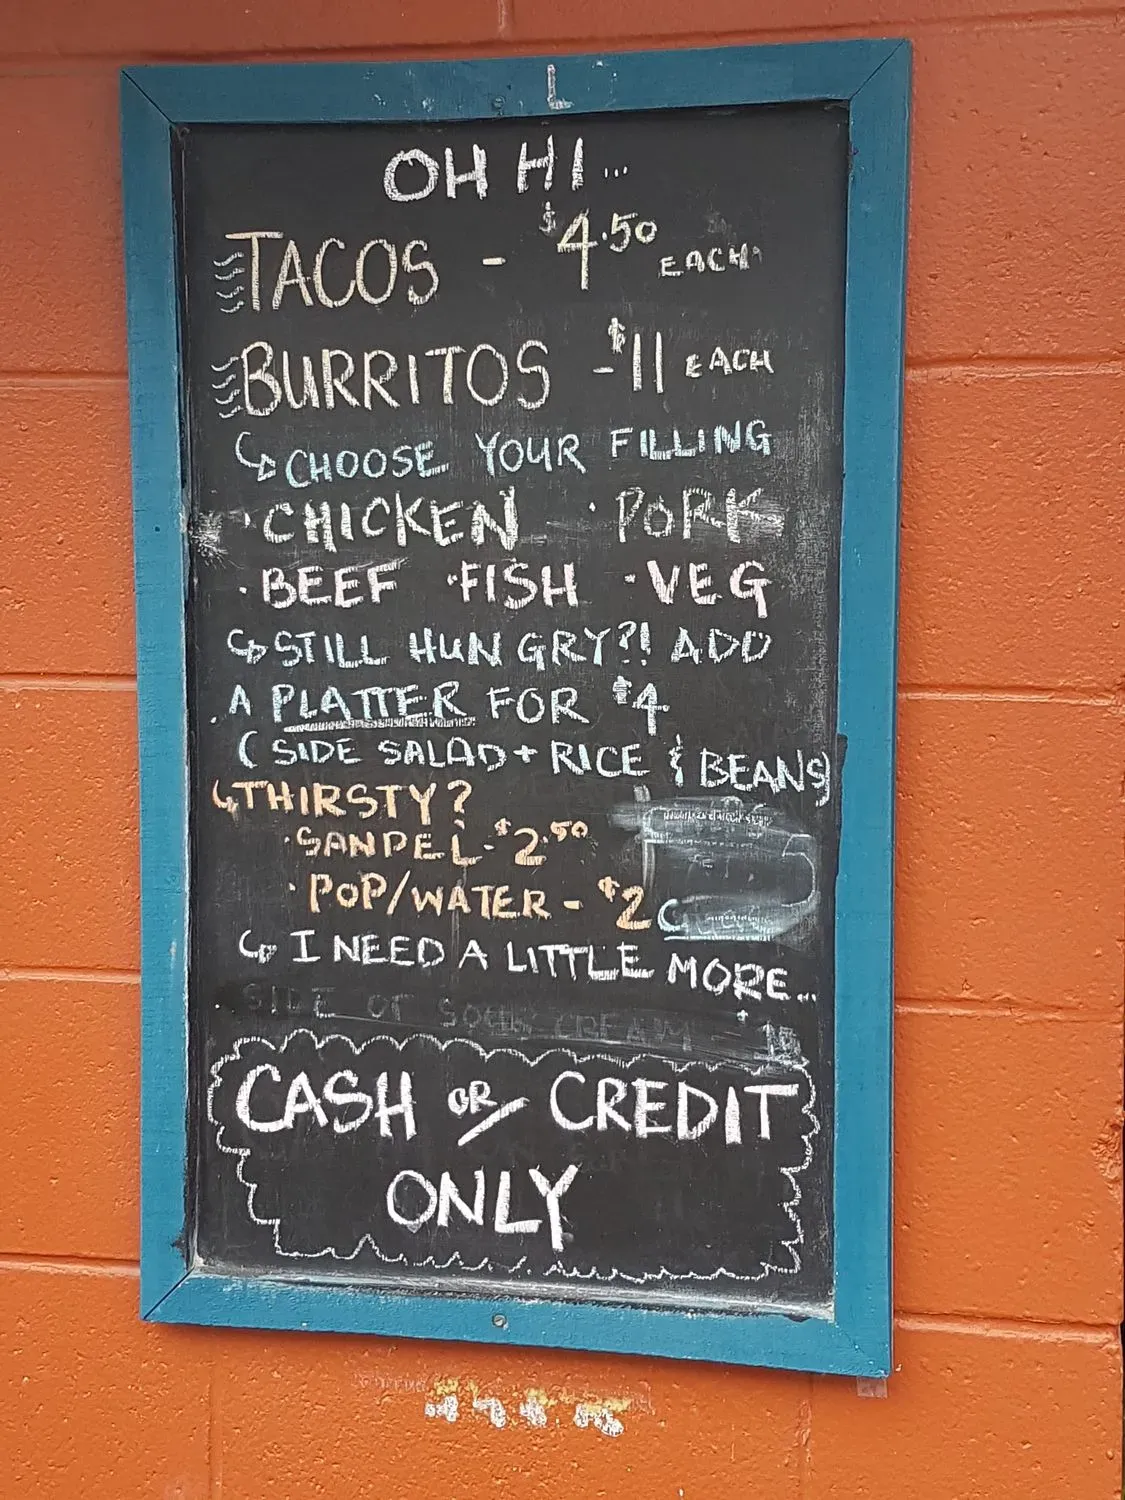 L
OH HI...
TACOS - $4.50 EACH
BURRITOS - $11 EACH
CHOOSE YOUR FILLING
· CHICKEN · PORK
· BEEF · FISH · VEG
STILL HUNGRY?! ADD
A PLATTER FOR $4
(SIDE SALAD + RICE & BEANS)
THIRSTY?
· SANPEL - $2.50
· POP/WATER - $2
I NEED A LITTLE MORE...
· SIDE OF SOUR CREAM -
CASH OR CREDIT
ONLY